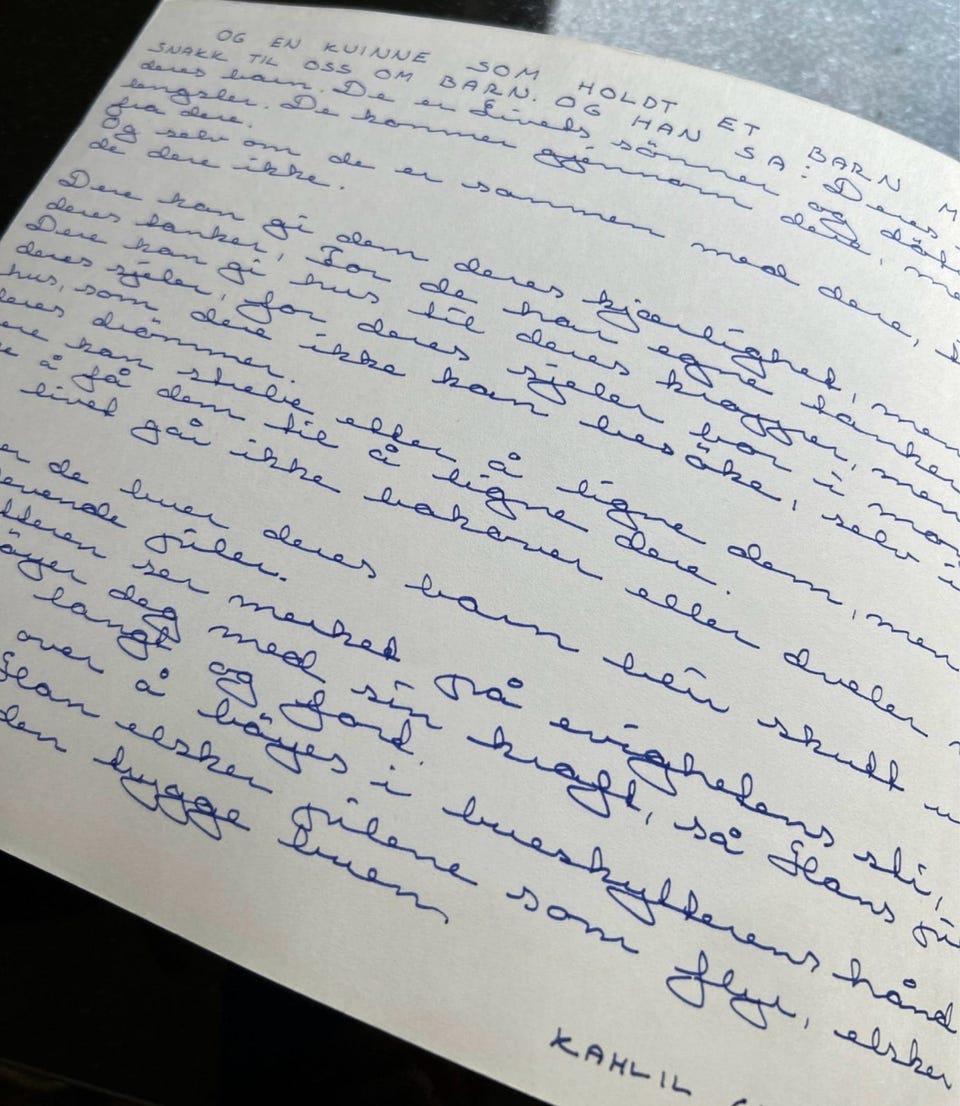 OG EN KVINNE SOM HOLDT ET BARN M
SNAKK TIL OSS OM BARN. OG HAN SA: Deres
deres barn. De er Livets sönner og döt
lengsler. De kommer gjennom dere, me
fra dere.
Og selv om de er sammen med dere, s
de dere ikke.
Dere kan gi dem deres kjærlighet, men
deres tanker, For de har egne tanker
Dere kan gi hus til deres kropper, men
deres sjeler, for deres sjeler bor i mor
hus, som dere ikke kan besöke, selv i
deres drömmer.
ere kan strebe etter å ligne dem, men
e å få dem til å ligne dere.
livet går ikke bakover eller dveler
er de buer deres barn blir skutt u
levende piler.
tteren ser merket på evighetens sti,
öyer deg med sin kraft, så Hans pi
langt og fort.
over å böyes i bueskytterens hånd
Han elsker pilene som flyr, elsker
den trygge buen
KAHLIL